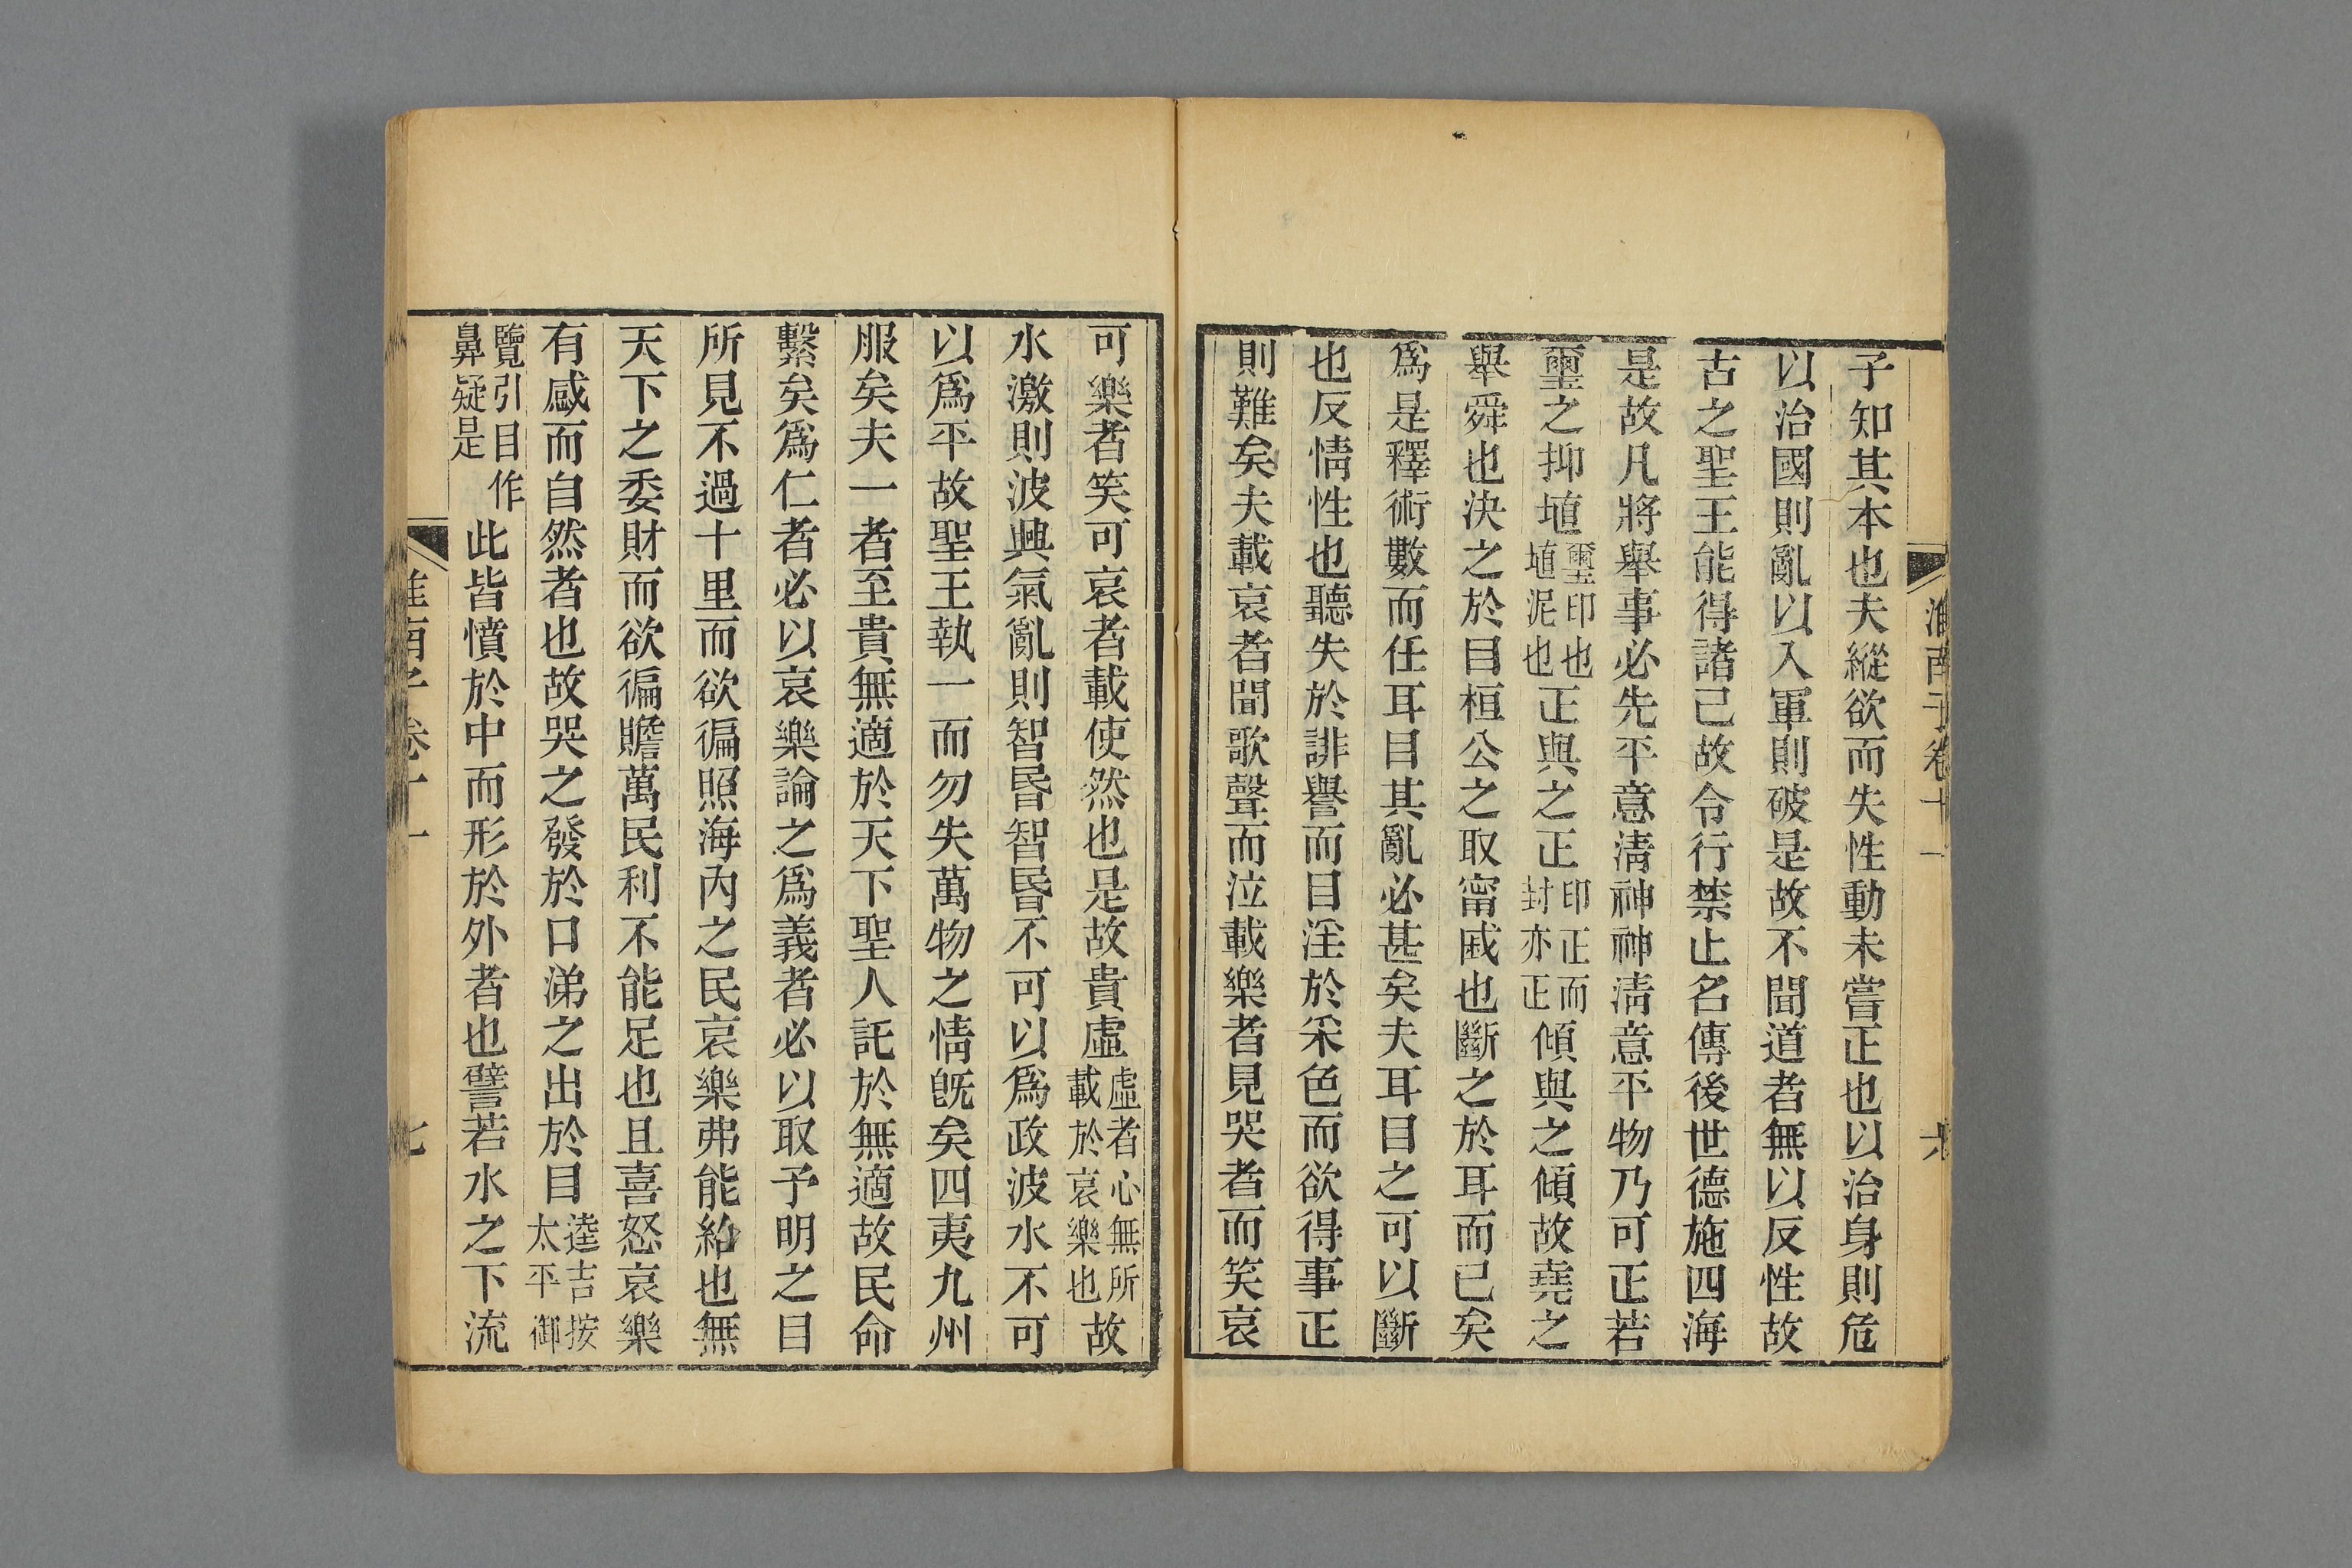 淮南子卷十一 六
子知其本也夫縱欲而失性動未嘗正也以治身則危
以治國則亂以入軍則破是故不聞道者無以反性故
古之聖王能得諸己故令行禁止名傳後世德施四海
是故凡將舉事必先平意淸神神淸意平物乃可正若
璽之抑埴璽印也埴泥也正與之正印正而封亦正傾與之傾故堯之
舉舜也決之於目桓公之取甯戚也斷之於耳而已矣
爲是釋術數而任耳目其亂必甚矣夫耳目之可以斷
也反情性也聽失於誹譽而目淫於采色而欲得事正
則難矣夫載哀者聞歌聲而泣載樂者見哭者而笑哀
可樂者笑可哀者載使然也是故貴虛虛者心無所載於哀樂也故
水激則波興氣亂則智昬智昬不可以爲政波水不可
以爲平故聖王執一而勿失萬物之情旣矣四夷九州
服矣夫一者至貴無適於天下聖人託於無適故民命
繫矣爲仁者必以哀樂論之爲義者必以取予明之目
所見不過十里而欲徧照海內之民哀樂弗能給也無
天下之委財而欲徧贍萬民利不能足也且喜怒哀樂
有感而自然者也故哭之發於口涕之出於目逵吉按太平御
覽引目作鼻疑是此皆憤於中而形於外者也譬若水之下流
淮南子卷十一 七